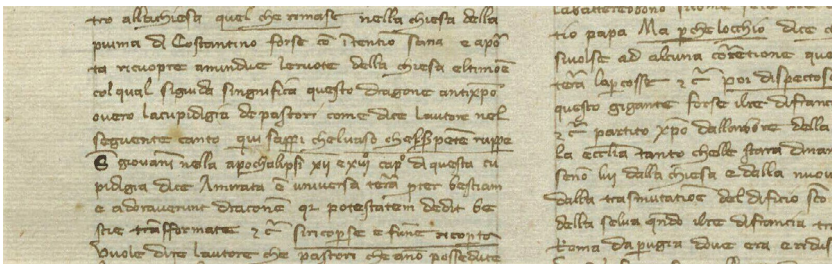 tro allachiesa quel che rimase nella chiesa della
piuma di Costantino forse cō ītentiō sana e apō
ta ricuopre amundue leruote della chiesa eltimōe
col qual siguida singnifica questo dragone antixpō
overo lacupidigia de pastori come dice lautore nel
seguente canto qui sappi chelvaso
S giovāni nella apochalipsi xii e xiii capo di questa cu
pidigia dice Amirata ē universa terā bestiam
e adoraverunt draconē qr potestatem dedit be
stie trasformate & c̄ si ricoperse e funē ricoperta
Vuole dice lautore che pastori che ano possedute
tio papa Ma perchelocchio dice
sivolse ad alcuna
terā la percosse & c̄ poi dispectoso
questo gigante forse ilre difranc
& c̄ partito xpō dallamore della
la ecclīa tanto chelle starā dinan
seno lui dalla chiesa e dalla nuov
dalla trasmutatiōe del dificio sco
della selva qndo ilre difrancia tr
Roma da perugia dove era e ridus